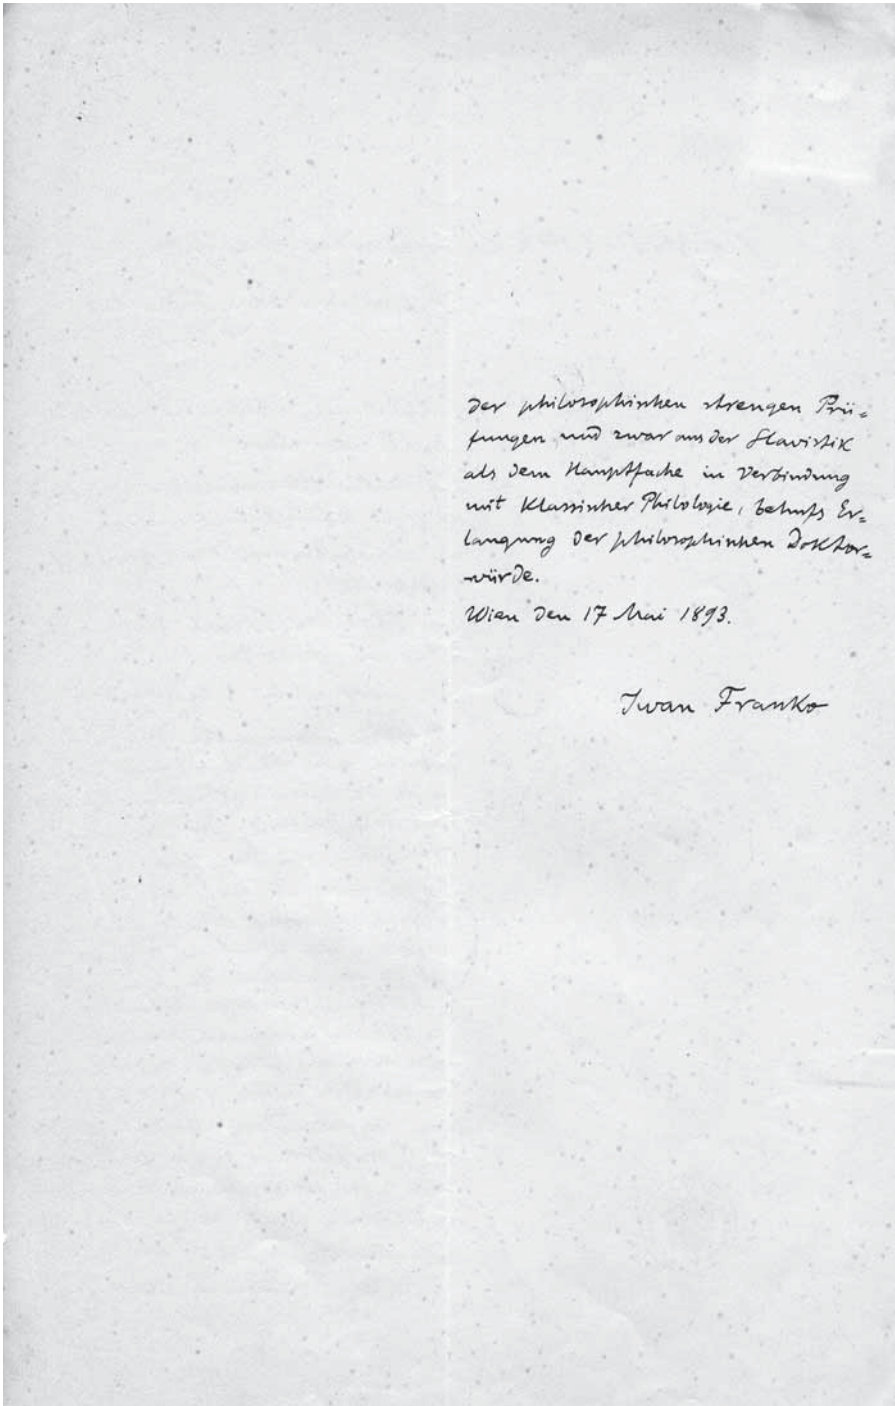 der philosophischen strengen Prü=
fungen und zwar aus der Slavistik
als dem Hauptfache in Verbindung
mit Klassischer Philologie, behufs Er=
langung der philosophischen Doktor=
würde.
Wien den 17 Mai 1893.
Iwan Franko